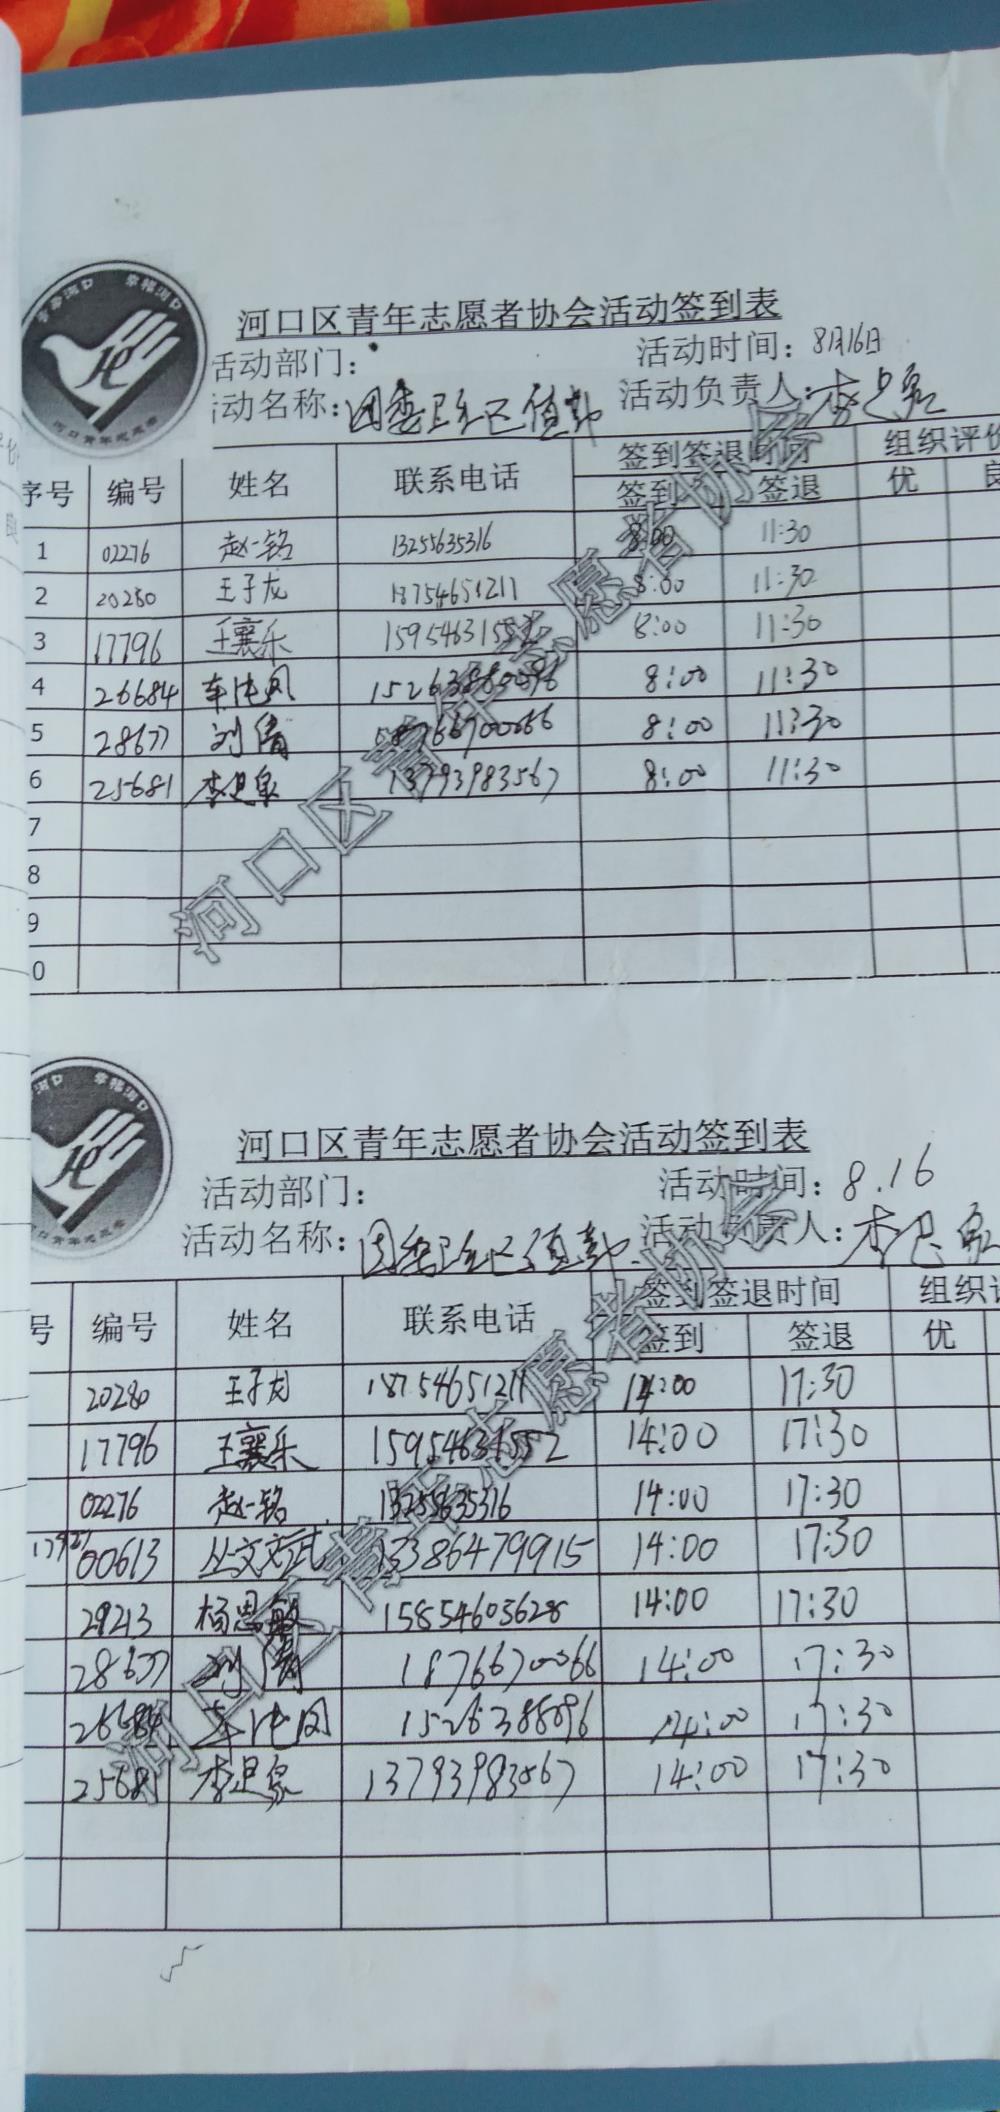 河口区青年志愿者协会活动签到表
活动部门：
活动时间：8月16日
活动名称：团委卫生区值勤
活动负责人：李思泉
序号 编号 姓名 联系电话 签到签退时间 组织评价
签到 签退 优 良
1 02276 赵一铭 13255635316 8:00 11:30
2 20280 王子龙 18754651211 8:00 11:30
3 17796 王襄乐 15954631552 8:00 11:30
4 26684 8:00 11:30
5 28677 刘倩 18766700066 8:00 11:30
6 25681 李思泉 13793983567 8:00 11:30
7
8
9
0
河口区青年志愿者协会
河口区青年志愿者协会活动签到表
活动部门：
活动时间：8.16
活动名称：团委卫生区值勤
活动负责人：李思泉
号 编号 姓名 联系电话 签到签退时间 组织评
签到 签退 优
20280 王子龙 18754651211 14:00 17:30
17796 王襄乐 15954631552 14:00 17:30
02276 赵一铭 13255635316 14:00 17:30
00613 丛文文 13386479915 14:00 17:30
29213 杨思敏 15854603628 14:00 17:30
28677 刘倩 18766700066 14:00 17:30
26684 14:00 17:30
25681 李思泉 13793983567 14:00 17:30
河口区青年志愿者协会